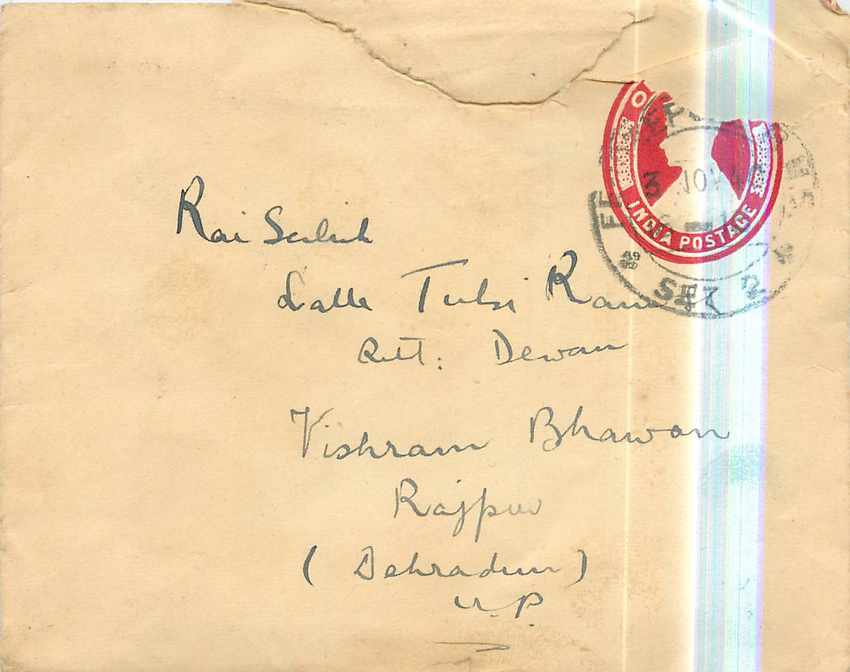 INDIA POSTAGE
3 NOV 4
SET 2
Rai Sahib
Lalla Tulsi Ram
Rtt: Dewan
Vishram Bhawan
Rajpur
( Dehradun )
U.P.